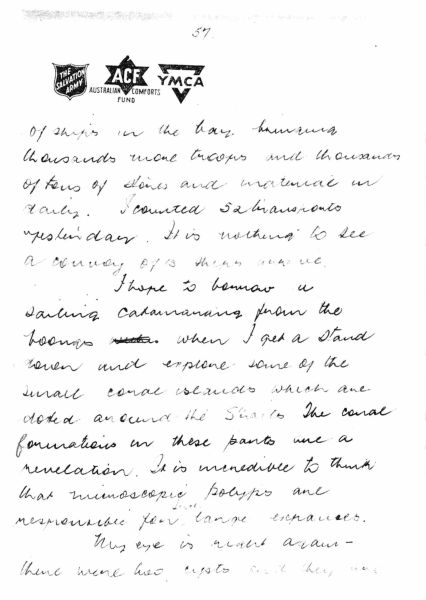 57.
THE SALVATION ARMY
ACF
AUSTRALIAN COMFORTS FUND
YMCA
of ships in the bay bringing
thousands more troops and thousands
of tons of stores and material in
daily. I counted 52 transports
yesterday. It is nothing to see
a convoy of 13 ships arrive.
I hope to borrow a
sailing catamarang from the
boongs when I get a stand
down and explore some of the
small coral islands which are
doted around the Straits The coral
formations in these parts are a
revelation. It is incredible to think
that microscopic polyps are
responsible for such large expanses.
My eye is right again –
there were two cysts and they